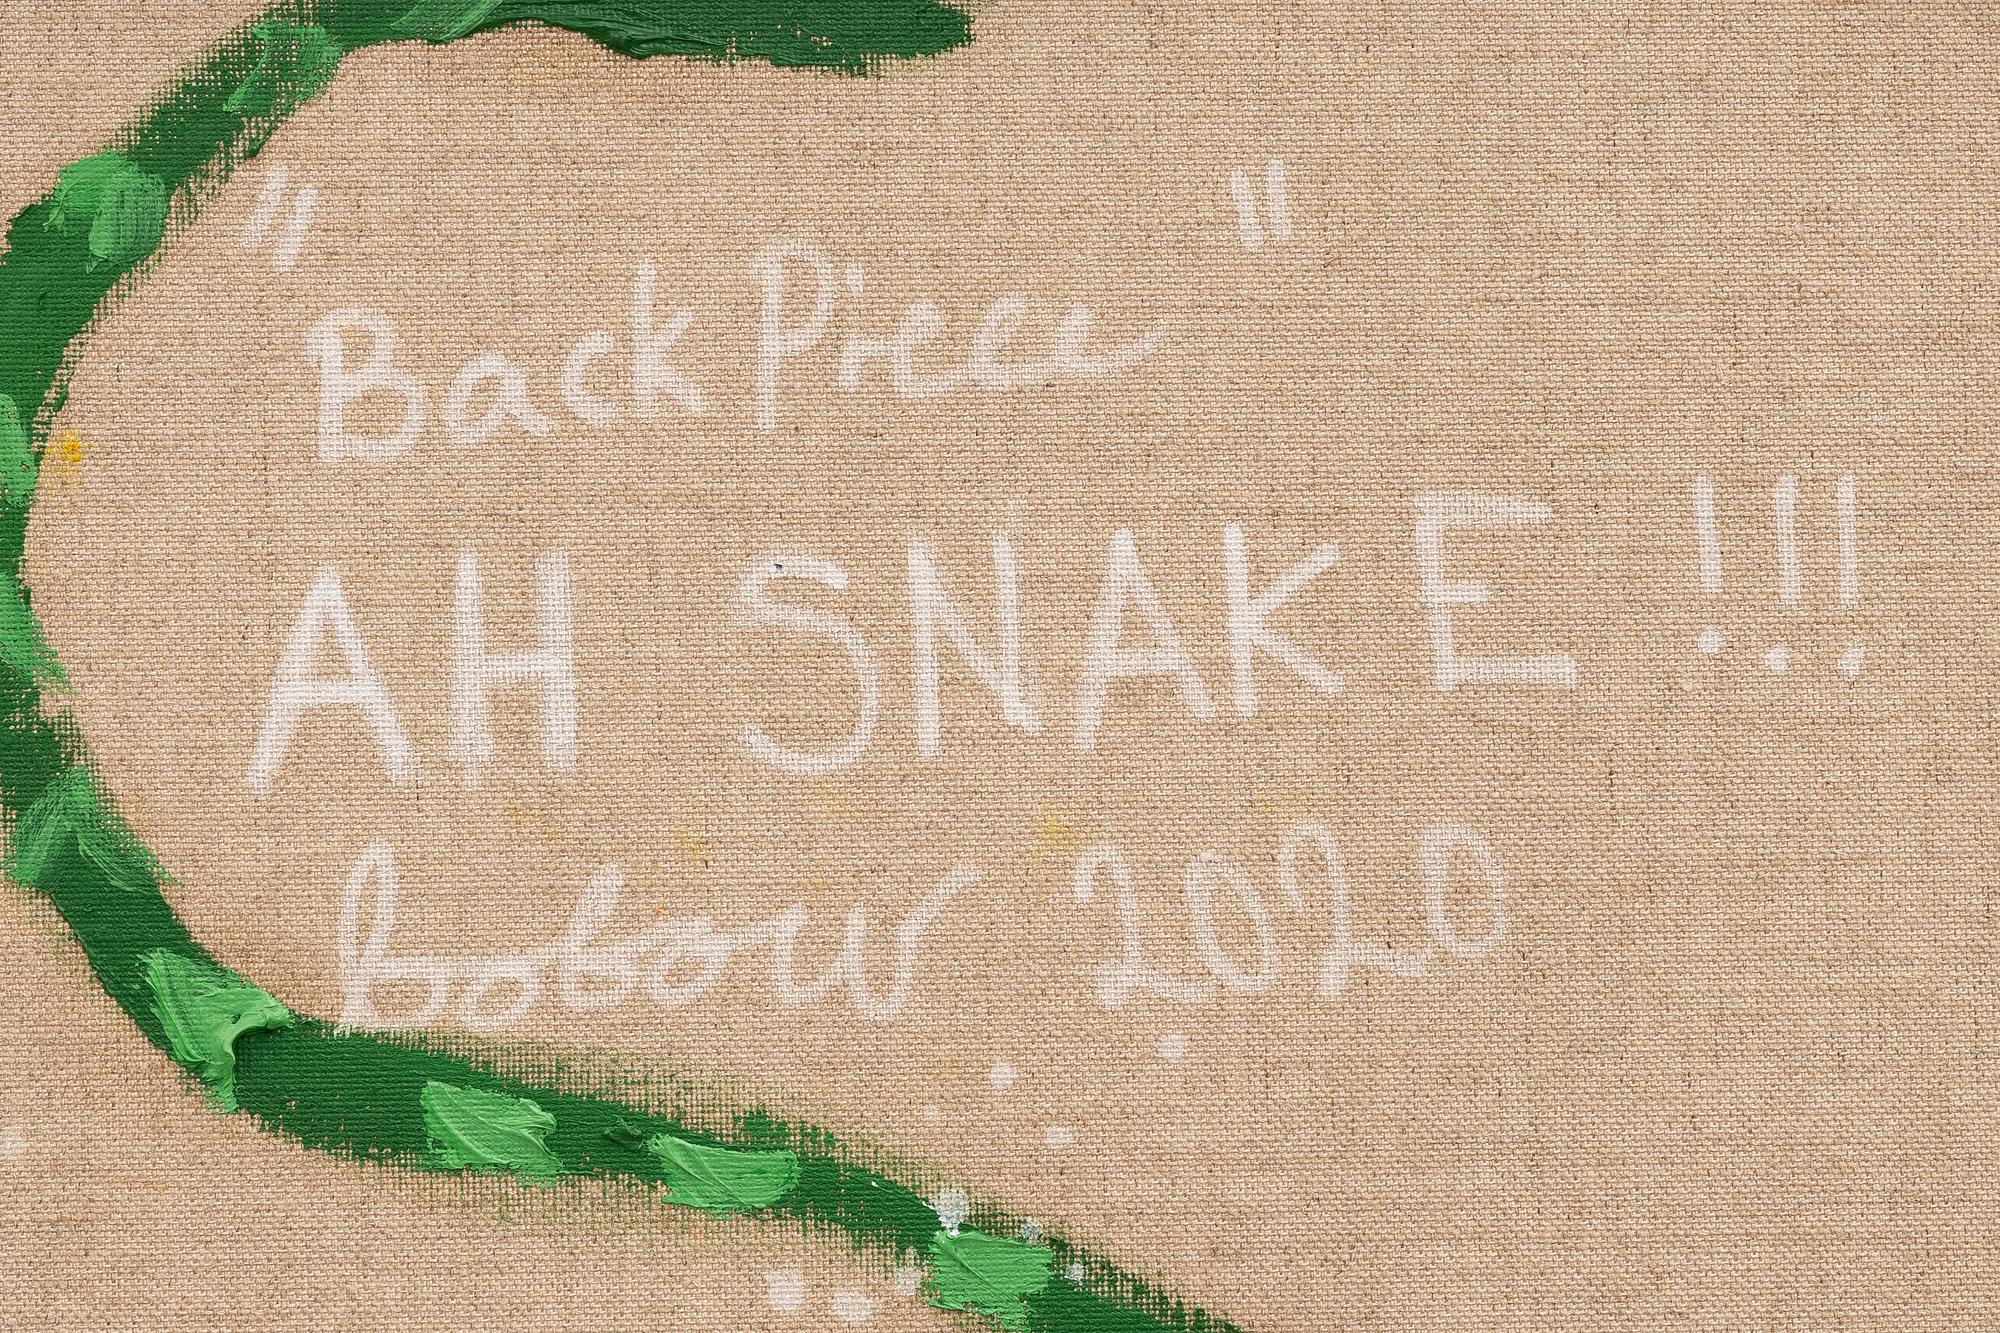 "Back Piece"
AH SNAKE !!!
bobow 2020